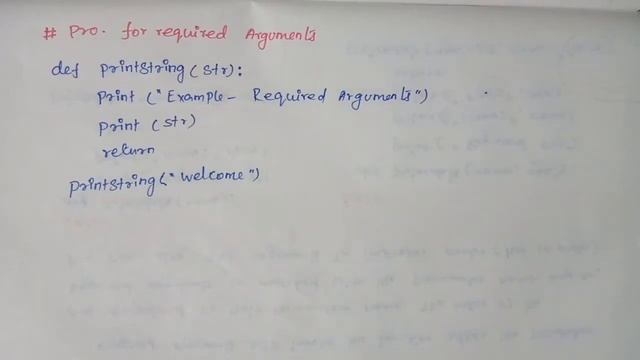 # Pro. for required Arguments
def printstring(str):
print ("Example- Required Arguments")
print (str)
return
printstring("welcome")